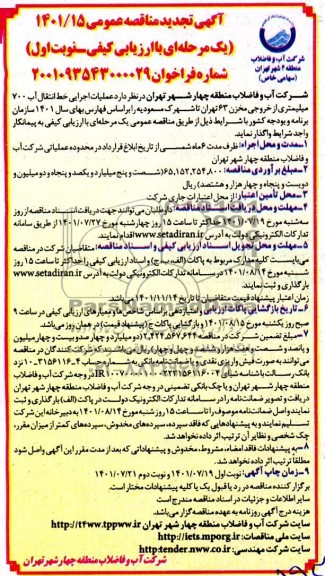 آگهی تجدید مناقصه عمومی ۱۴۰۱/۱۵
(یک مرحله‌ای با ارزیابی کیفی-نوبت اول)
شماره فراخوان ۲۰۰۱۰۹۳۵۴۳۰۰۰۰۲۹
شرکت آب و فاضلاب
منطقه ۴ شهر تهران
(سهامی خاص)
شرکت آب و فاضلاب منطقه چهار شهر تهران در نظر دارد عملیات اجرایی خط انتقال آب ۷۰۰
میلیمتری از خروجی مخزن ۶۳ تهران تا شهرک مسعودیه را بر اساس فهارس بهای سال ۱۴۰۱ سازمان
برنامه و بودجه کشور با شرایط ذیل از طریق مناقصه عمومی یک مرحله‌ای با ارزیابی کیفی به پیمانکار
واجد شرایط واگذار نماید.
۱-مدت و محل اجراء: ظرف مدت ۶ ماه شمسی از تاریخ ابلاغ قرارداد در محدوده عملیاتی شرکت آب
و فاضلاب منطقه چهار شهر تهران
۲-مبلغ برآوردی مناقصه: ۶۵,۱۵۲,۲۵۴,۸۰۰ (شصت و پنج میلیارد و یکصد و پنجاه و دو میلیون و
دویست و پنجاه و چهار هزار و هشتصد) ریال
۳-محل تأمین اعتبار: از محل اعتبارات جاری شرکت
۴-مهلت و محل دریافت اسناد مناقصه: داوطلبان می‌توانند جهت دریافت اسناد مناقصه از روز
سه‌شنبه مورخ ۱۴۰۱/۰۷/۱۹ حداکثر تا ساعت ۱۵ روز چهارشنبه مورخ ۱۴۰۱/۰۷/۲۷ از طریق سامانه
تدارکات الکترونیکی دولت به آدرس www.setadiran.ir اقدام نمایند.
۵-مهلت و محل تحویل اسناد ارزیابی کیفی و اسناد مناقصه: متقاضیان شرکت در مناقصه
می‌بایست کلیه مدارک مربوط به پاکات (الف-ب-ج) و اسناد ارزیابی کیفی را حداکثر تا ساعت ۱۵ روز
شنبه مورخ ۱۴۰۱/۰۸/۱۴ در سامانه تدارکات الکترونیکی دولت به آدرس www.setadiran.ir
بارگذاری و ثبت نمایند.
زمان اعتبار پیشنهاد قیمت متقاضیان تا تاریخ ۱۴۰۱/۱۱/۱۴ می‌باشد.
۶-تاریخ بازگشایی پاکات ارزیابی و امتیازدهی بر اساس شاخص‌ها و معیارهای ارزیابی کیفی در ساعت ۹
صبح روز یکشنبه مورخ ۱۴۰۱/۰۸/۱۵ و بازگشایی پاکات ج (پیشنهاد قیمت) در همان روز می‌باشد.
منطقه چهار شهر تهران و یا چک بانکی تضمینی در وجه شرکت آب و فاضلاب منطقه چهار شهر تهران
دریافت و تصویر ضمانتنامه را در سامانه تدارکات الکترونیک دولت در پاکت (الف) بارگذاری و ثبت
نمایند و اصل ضمانت‌نامه موصوف را تا ساعت ۱۵ روز شنبه مورخ ۱۴۰۱/۰۸/۱۴ به دبیرخانه این شرکت
تسلیم نمایند و به پیشنهادهایی که فاقد سپرده، سپرده‌های مخدوش، سپرده‌های کمتر از میزان مقرر،
چک شخصی و نظایر آن ترتیب اثر داده نخواهد شد.
۸-به پیشنهادات فاقد امضاء، مشروط، مخدوش و پیشنهاداتی که بعد از مدت مقرر این آگهی واصل شود
مطلقاً ترتیب اثر داده نخواهد شد.
۹-زمان چاپ آگهی: نوبت اول ۱۴۰۱/۰۷/۱۹ و نوبت دوم ۱۴۰۱/۰۷/۲۱
برگزار کننده مناقصه در رد یا قبول یک یا کلیه پیشنهادات مختار است.
سایر اطلاعات و جزئیات در اسناد مناقصه مندرج است
هزینه درج آگهی روزنامه به عهده مناقصه‌گزار می‌باشد.
سایت شرکت آب و فاضلاب منطقه چهار شهر تهران http://tfww.tppww.ir
سایت ملی مناقصات: http://iets.mporg.ir
سایت شرکت مهندسی: http:tender.nww.co.ir
شرکت آب و فاضلاب منطقه چهار شهر تهران